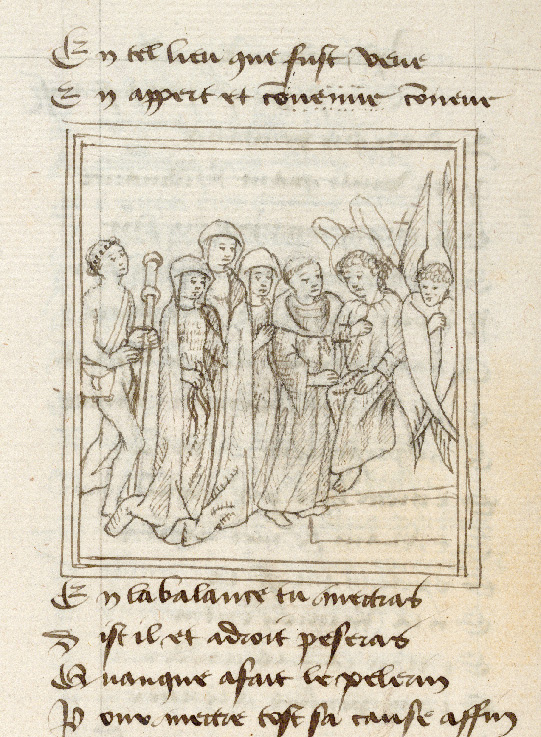 En tel lieu que fust veue
En appert et co̅uenue co̅neue
En la balance tu mettras
Dist il et adroit peseras
Quanque a fait le pelerin
Pour mettre tost sa cause affin